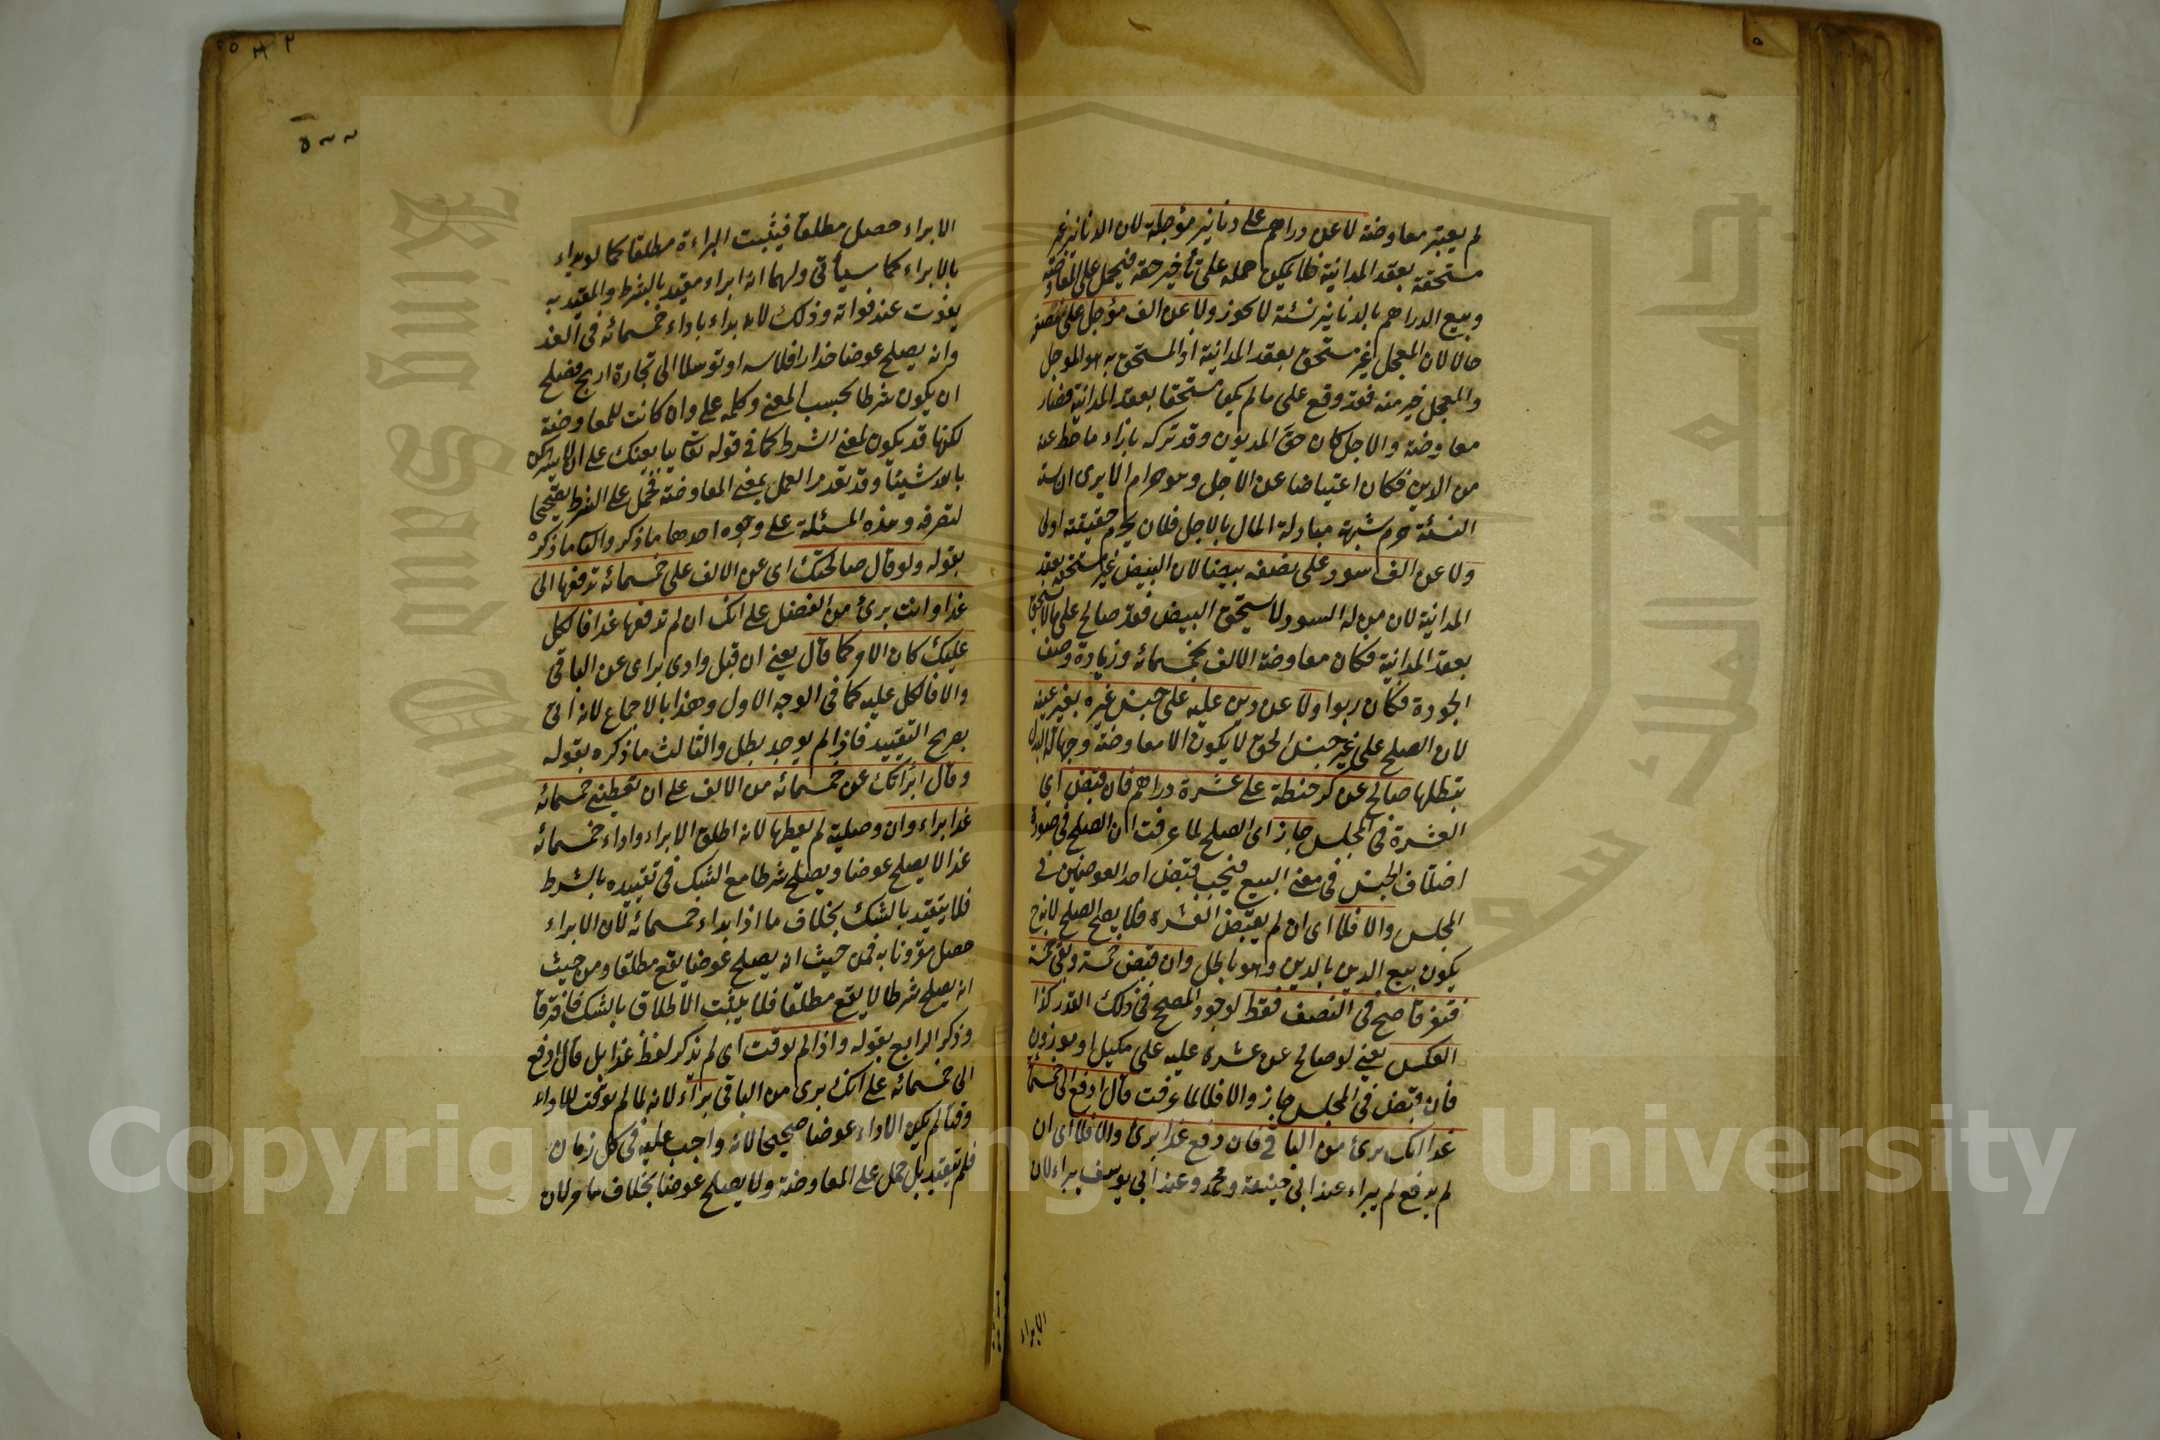 لم يعتبر معاوضة لا عن دراهم على دنانير مؤجلة لان الدنانير غير
مستحقة بعقد المداينة فلا يمكن حمله على تأخير حقه فيحمل على المعاوضة
وبيع الدراهم بالدنانير نسئة لا يجوز ولا عن الف مؤجل على نصفه
حالا لان المعجل غير مستحق بعقد المداينة اذ المستحق به هو المؤجل
والمعجل خير منه فقد وقع على ما لم يكن مستحقا بعقد المداينة فصار
معاوضة والاجل كان حق المديون وقد تركه بازاء ما حطه عنه
من الدين فكان اعتياضا عن الاجل وهو حرام الا يرى ان ربا
النسئة حرم شبهة مبادلة المال بالاجل فلان يحرم حقيقته اولى
ولا عن الف سود على نصفه بيضا لان البيض غير مستحقة بعقد
المداينة لان من له السود لا يستحق البيض فقد صالح على ما لا يستحق
بعقد المداينة فكان معاوضة الالف بخمسمائه وزيادة وصف
الجودة فكان ربوا ولا عن دين عليه على جنس غيره بغير عينه
لان الصلح على غير جنس الحق لا يكون الا معاوضة وجهالة البدل
تبطلها صالح عن كر حنطة على عشرة دراهم فان قبض اي
العشرة في المجلس جاز اى الصلح لما عرفت ان الصلح في صورة
اختلاف الجنس في معنى البيع فيجب قبض احد العوضين في
المجلس والا فلا اى ان لم يقبض العشرة فلا يصح الصلح لانه ح
يكون بيع الدين بالدين وهو باطل وان قبض خمسة وبقى خمسة
فتفرقا صح في النصف فقط لوجود المصحح في ذلك القدر كذا
العكس يعنى لو صالح عن عشرة عليه على مكيل او موزون
فان قبض في المجلس جاز والا فلا لما عرفت قال ادفع الى خمسمائة
غدا انك برئ من الباقى فان دفع غدا برئ والا فلا اى ان
لم يدفع لم يبراء عند ابى حنيفة ومحمد وعند ابى يوسف يبراء لان
الابراء
الابراء حصل مطلقا فيثبت البراءة مطلقا كما لو بداء
بالابراء كما سيأتى ولهما انه ابراء مقيد بالشرط والمقيد به
يفوت عند فواته وذلك لانه بداء باداء خمسمائه في الغد
وانه يصلح عوضا حذار افلاسه او توسلا الى تجارة اربح فصلح
ان يكون شرطا بحسب المعنى وكلمه على وان كانت للمعاوضة
لكنها قد يكون لمعنى الشرط كما في قوله تعا يبايعنك على ان لا يشركن
بالله شيئا وقد تعذر العمل بمعنى المعاوضة فحمل على الشرط تصحيحا
لتصرفه وهذه المسئلة على وجوه احدها ما ذكر والثا ما ذكره
بقوله ولو قال صالحتك اى عن الالف على خمسمائه تدفعها الى
غدا وانت برئ من الفضل على انك ان لم تدفعها غدا فالكل
عليك كان الامر كما قال يعنى ان قبل وادى برى عن الباقى
والا فالكل عليه كما في الوجه الاول وهذا بالاجماع لانه اتى
بصريح التقييد فاذا لم يوجد بطل والثالث ما ذكره بقوله
وقال ابرأتك عن خمسمائه من الالف على ان تعطينى خمسمائه
غدا براء وان وصلية لم يعطها لانه اطلق الابراء واداء خمسمائه
غدا لا يصلح عوضا ويصلح شرطا مع الشك في تقييده بالشرط
فلا يتقيد بالشك بخلاف ما اذا بداء خمسمائه لان الابراء
حصل مقرونا به فمن حيث انه يصلح عوضا يقع مطلقا ومن حيث
انه يصلح شرطا لا يقع مطلقا فلا يثبت الاطلاق بالشك فافترقا
وذكر الرابع بقوله واذا لم يوقت اى لم يذكر لفظ غدا بل قال ادفع
الى خمسمائه على انك برى من الباقى براء لانه لما لم يوقت للاداء
وقتا لم يكن الاداء عوضا صحيحا لانه واجب عليه في كل زمان
فلم يتقيد بل حمل على المعاوضة ولا يصلح عوضا بخلاف ما مر لان
Copyright © King Saud University
King Saud University
جامعة الملك سعود